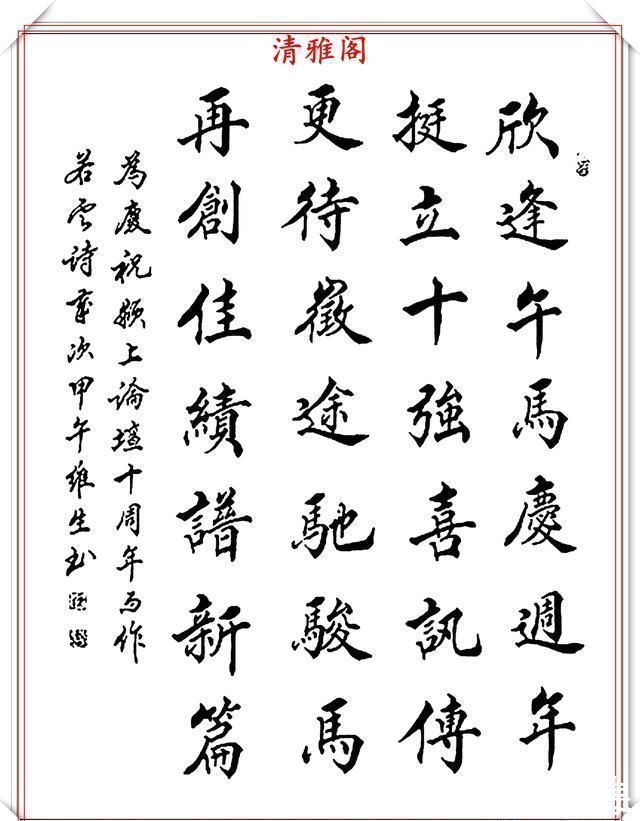 清雅阁
欣逢午馬慶週年
挺立十強喜訊傳
更待徵途馳駿馬
再創佳績譜新篇
為慶祝颍上論壇十周年而作
若雲詩 歲次甲午維生书